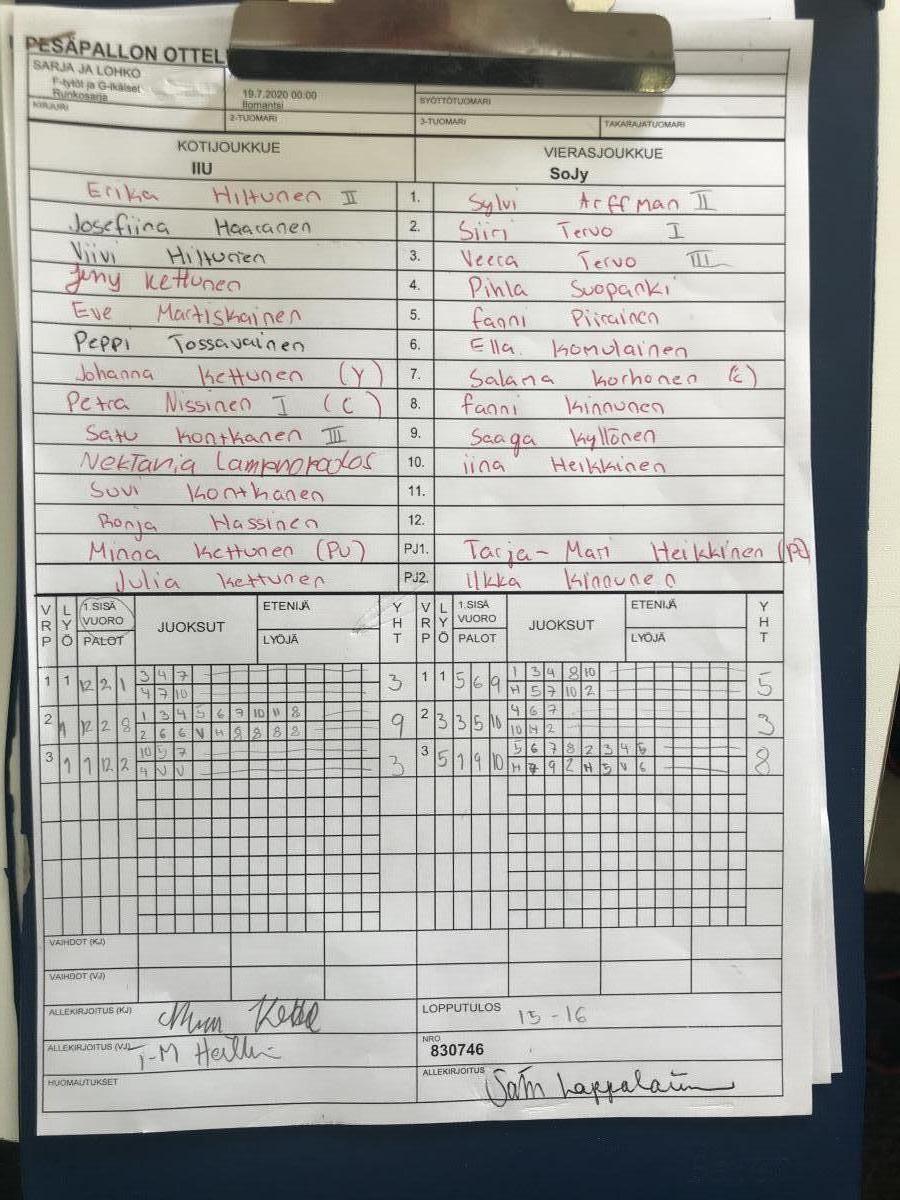 PESÄPALLON OTTEL
SARJA JA LOHKO
F-tytöt ja G-ikäiset
Runkosarja
19.7.2020 00:00
Ilomantsi
SYÖTTÖTUOMARI
KIRJURI
2-TUOMARI
3-TUOMARI
TAKARAJATUOMARI
KOTIJOUKKUE
IIU
VIERASJOUKKUE
SoJy
Erika Hiltunen II 1. Sylvi Arffman II
Josefiina Haaranen 2. Siiri Tervo I
Viivi Hiltunen 3. Veera Tervo III
Jeny Kettunen 4. Pihla Suopanki
Eve Martiskainen 5. Fanni Piirainen
Peppi Tossavainen 6. Ella Komulainen
Johanna Kettunen (Y) 7. Salama Korhonen (C)
Petra Nissinen I (C) 8. Fanni Kinnunen
Satu Kontkanen III 9. Saaga Kyllönen
Nektaria 10. iina Heikkinen
Suvi Kontkanen 11.
Ronja Hassinen 12.
Minna Kettunen (PJ) PJ1. Tarja-Mari Heikkinen
Julia Kettunen PJ2. Ilkka Kinnunen
VRP LYÖ 1.SISÄ VUORO PALOT JUOKSUT ETENIJÄ LYÖJÄ YHT VRP LYÖ 1.SISÄ VUORO PALOT JUOKSUT ETENIJÄ LYÖJÄ YHT
1 1 12 2 1 3 4 7 3 1 1 5 6 9 1 3 4 8 10 5
4 7 10 H 5 7 10 2
2 1 12 2 8 1 3 4 5 6 7 10 11 8 9 2 3 3 5 10 4 6 7 3
2 6 6 V H 8 8 8 8 10 H 2
3 1 1 12 2 10 5 7 3 3 5 7 9 10 5 6 7 8 2 3 4 5 8
4 V V H 7 9 2 H 5 V 6
VAIHDOT (KJ)
VAIHDOT (VJ)
ALLEKIRJOITUS (KJ)
LOPPUTULOS 15-16
ALLEKIRJOITUS (VJ) T-M
NRO
830746
HUOMAUTUKSET
ALLEKIRJOITUS